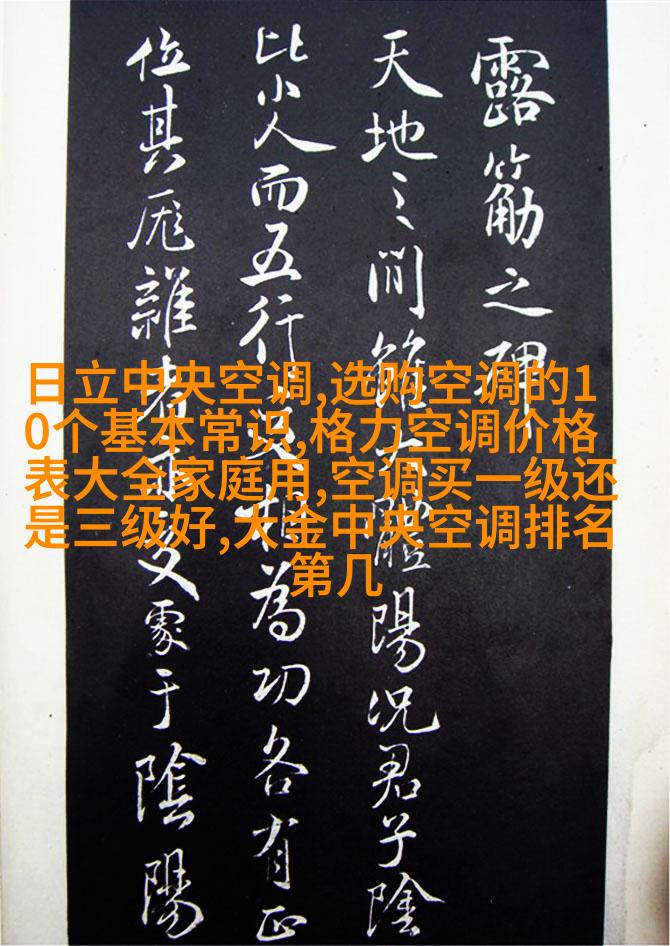 露筋之碑
天地之間雖體陽況君子陰
比小人而五行相為功各有正
位其厖雜者處于陰陽
日立中央空调,选购空调的1
0个基本常识,格力空调价格
表大全家庭用,空调买一级还
是三级好,大金中央空调排名
第几